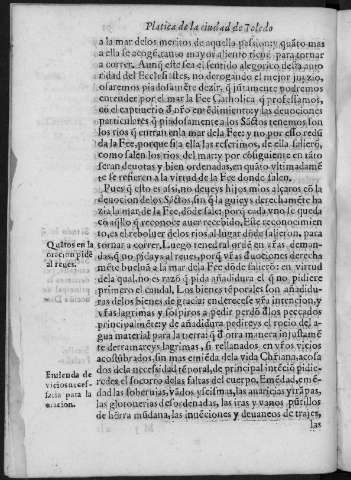 Platica de la ciudad de Toledo
a la mar de los meritos de aquella passion: y quãto mas
a ella se acoge, tãto mayor aliento tiene para tornar
a correr. Aunq̃ este sea el sentido alegorico desta auto
ridad del Ecclesiastes, no derogando el mejor juyzio,
osaremos piadosamẽte dezir, q̃ justamente podremos
entender por el mar la Fee Catholica q̃ professamos,
en el captiuerio
particulares q̃ piadosamente a los Sãctos tenemos son
los rios q̃ entran en la mar de la Fee: y no por esso redũ
da la Fee, porque si a ella las referimos, de ella salierõ,
como salen los rios del mar: y por cõsiguiente en tãto
seran deuotas y bien ordenadas, en quãto vltimadamẽ
te se refieren a la virtud de la Fee donde salen.
Pues q̃ esto es assi, no deueys hijos mios alçaros cõ la
deuocion de los Sãctos, sin q̃ la guieys derechamẽte ha
zia la mar de la Fee, dõde salẽ: porq̃ cada vno se queda
cõ aq̃llo q̃ reconoce auer recebido. Este reconocimien
to, es el reboluer de los rios al lugar dõde salieron, para
tornar a correr. Luego tened tal ordẽ en vr̃as deman-
das, q̃ no pidays al reues, porq̃ vr̃as d̃uociones derecha
mẽte bueluã a la mar de la Fee dõde salierõ: en virtud
de la qual, no es razõ q̃ pida añadidura el q̃ no pidiere
primero el caudal. Los bienes tẽporales son añadidu-
ras de los bienes de gracia: enderecese vr̃a intencion, y
vr̃as lagrimas y sospiros a pedir perdõ d̃ los peccados
principalmẽte: y de añadidura pedireys el rocio del a-
gua material para la tierra: q̃ d̃ otra manera injustamẽ
te derramareys lagrimas, si rellanados en vr̃os vicios
acostũbrados, sin mas emiẽda de la vida Chr̃iana, acosa
dos de la necessidad tẽporal, de principal intẽciõ pidie-
redes el socorro de las faltas del cuerpo. Emẽdad, emẽ-
dad las soberuias, vãdos y cismas, las auaricias y trãpas,
las glotonerias desordenadas, las iras y vanos pũtillos
de hõrra mũdana, las inuẽciones y deuaneos de trajes,
las
Quãtos en la
oracion pidẽ
al reues.
Emienda de
vicios neces-
saria para la
oracion.